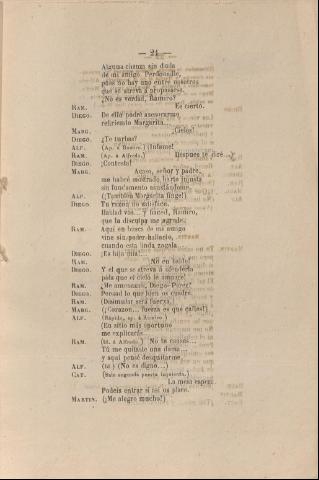 — 21 —
Alguna chanza sin duda
de mi amigo. Perdonadle,
pues no hay uno entre nosotros
que se atreva á propasarse.
¿No es verdad, Ramiro?
RAM. Es cierto.
DIEGO. De ello podrá asegurarme
refiriendo Margarita...
MARG. ¡Cielos!
DIEGO. ¿Te turbas?
ALF. (Ap. á Ramiro.) ¡Infame!
RAM. (Ap. á Alfredo.) Despues te diré...
DIEGO. ¡Contesta!
MARG. Acaso, señor y padre,
me habré mostrado harto injusta
sin fundamento
ALF. (¡Tambien Margarita finge!)
DIEGO. Tu razon no satisface.
Hablad vos... y haced, Ramiro,
que la disculpa me agrade.
RAM. Aquí en busca de mi amigo
vine sin poder hallarle,
cuando esta linda zagala
DIEGO. ¡Es hija mia!
RAM. No en balde!
DIEGO. Y el que se atreva á ofenderla
pida que el cielo le ampare!
RAM. ¿Me amenazais, Diego-Perez?
DIEGO. Pensad lo que bien os cuadre.
RAM. (Disimular será fuerza.)
MARG. (¡Corazon... fuerza es que calles!)
ALF. (Rápido, ap. á Ramiro.)
(En sitio más oportuno
me explicarás.
RAM. (Id. á Alfredo.) No te canses...
Tú me quitaste una dama...
y aquí pensé desquitarme.
ALF. (Id.) (No es digno...)
CAT. (Sale segunda puerta izquierda.)
La mesa espera.
Podeis entrar si os place.
MARTIN. (¡Me alegro mucho!)